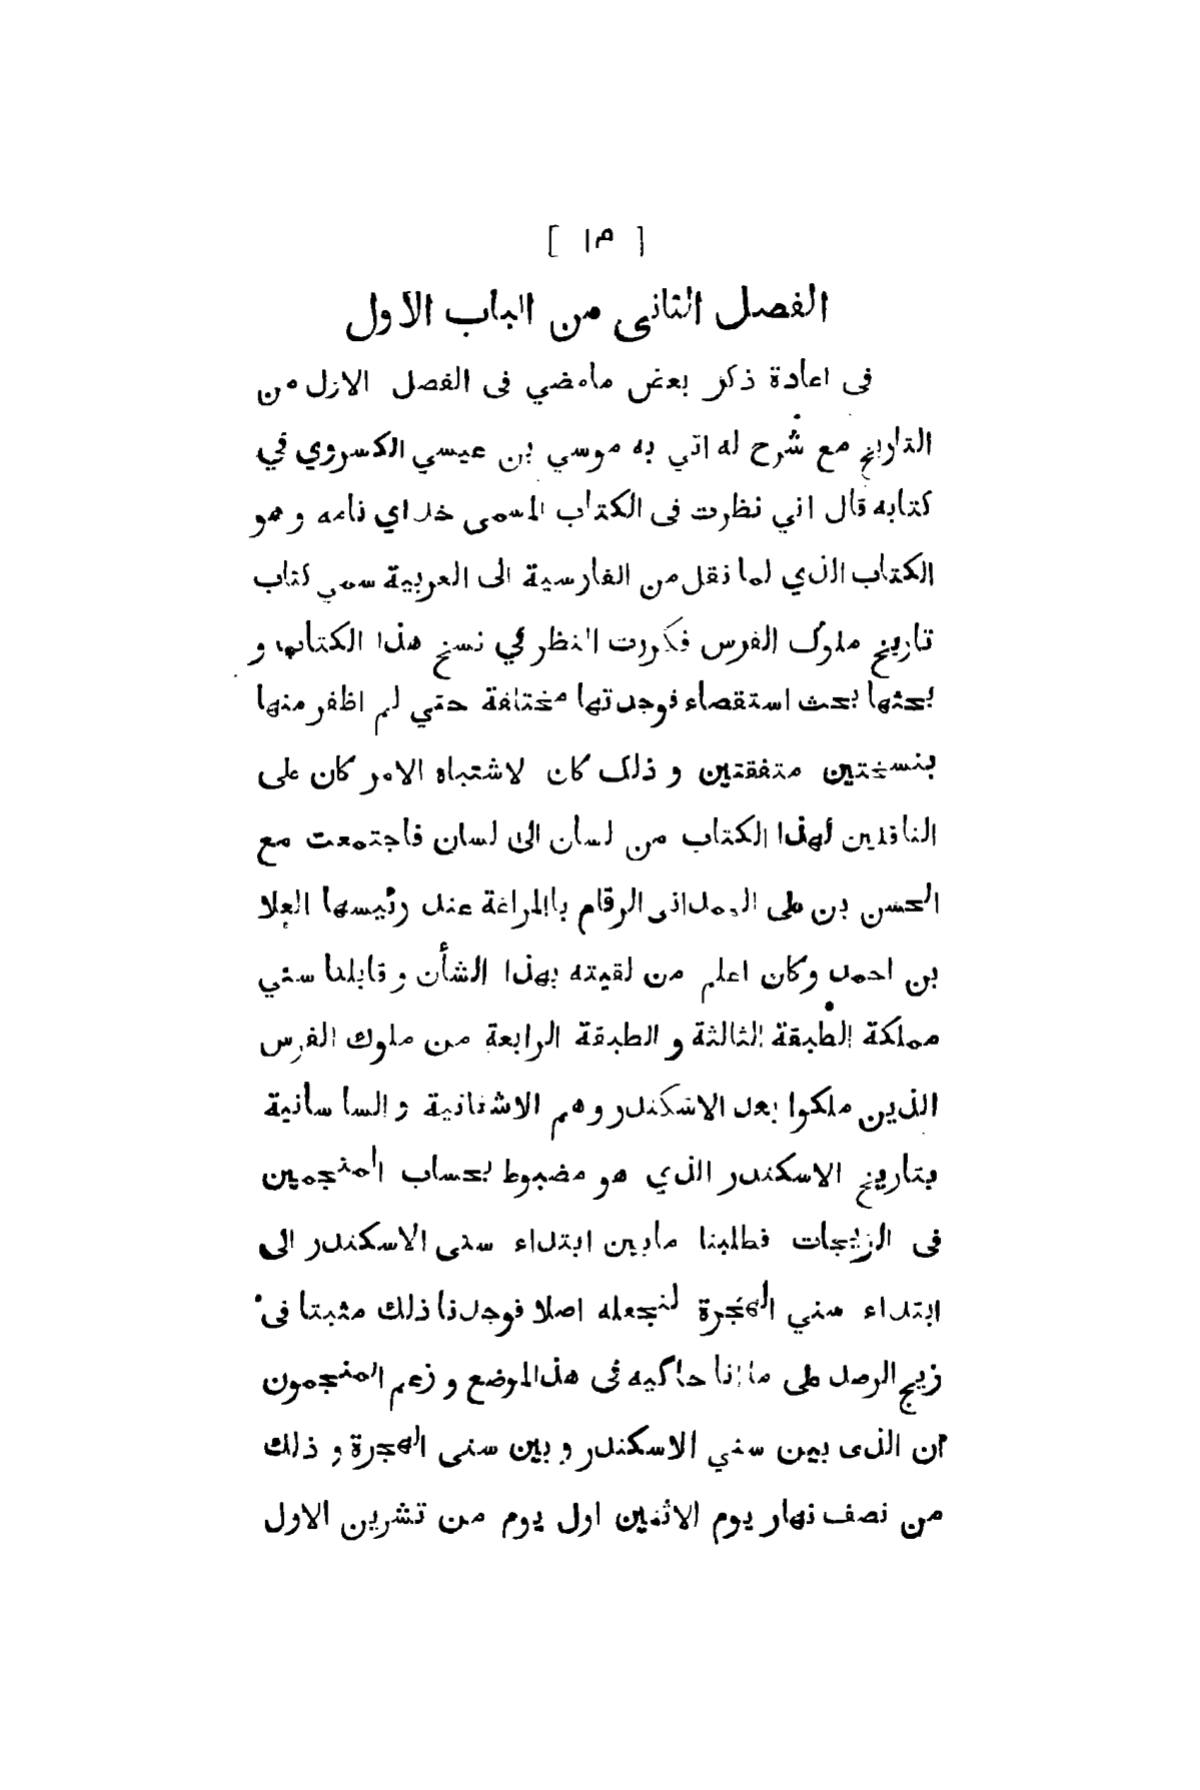 [ ١٣ ]
الفصل الثانى من الباب الاول
فى اعادة ذكر بعض مامضي فى الفصل الازل من
التاريخ مع شرح له اتي به موسي بن عيسي الكسروي في
كتابه قال اني نظرت فى الكتاب المسمى خداي نامه و هو
الكتاب الذي لما نقل من الفارسية الى العربية سمي كتاب
تاريخ ملوك الفرس فكررت النظر في نسخ هذا الكتاب و
بحثها بحث استقصاء فوجدتها مختلفة حتي لم اظفر منها
بنسختين متفقتين و ذلك كان لاشتباه الامر كان على
الناقلين لهذا الكتاب من لسان الى لسان فاجتمعت مع
الحسن بن على الهمدانى الرقام باالمراغة عند رئيسها العلا
بن احمد وكان اعلم من لقيته بهذا الشأن و قابلنا سني
مملكة الطبقة الثالثة و الطبقة الرابعة من ملوك الفرس
الذين ملكوا بعد الاسكندر و هم الاشغانية و السا سانية
بتاريخ الاسكندر الذي هو مضبوط بحساب المنجمين
فى الزيجات فطلبنا مابين ابتداء سنى الاسكندر الى
ابتداء سني الهجرة لنجعله اصلا فوجدنا ذلك مثبتا فى
زيج الرصد على ما انا حاكيه فى هذالموضع و زعم المنجمون
ان الذى بين سني الاسكندر و بين سنى الهجرة و ذلك
من نصف نهار يوم الاثنين اول يوم من تشرين الاول